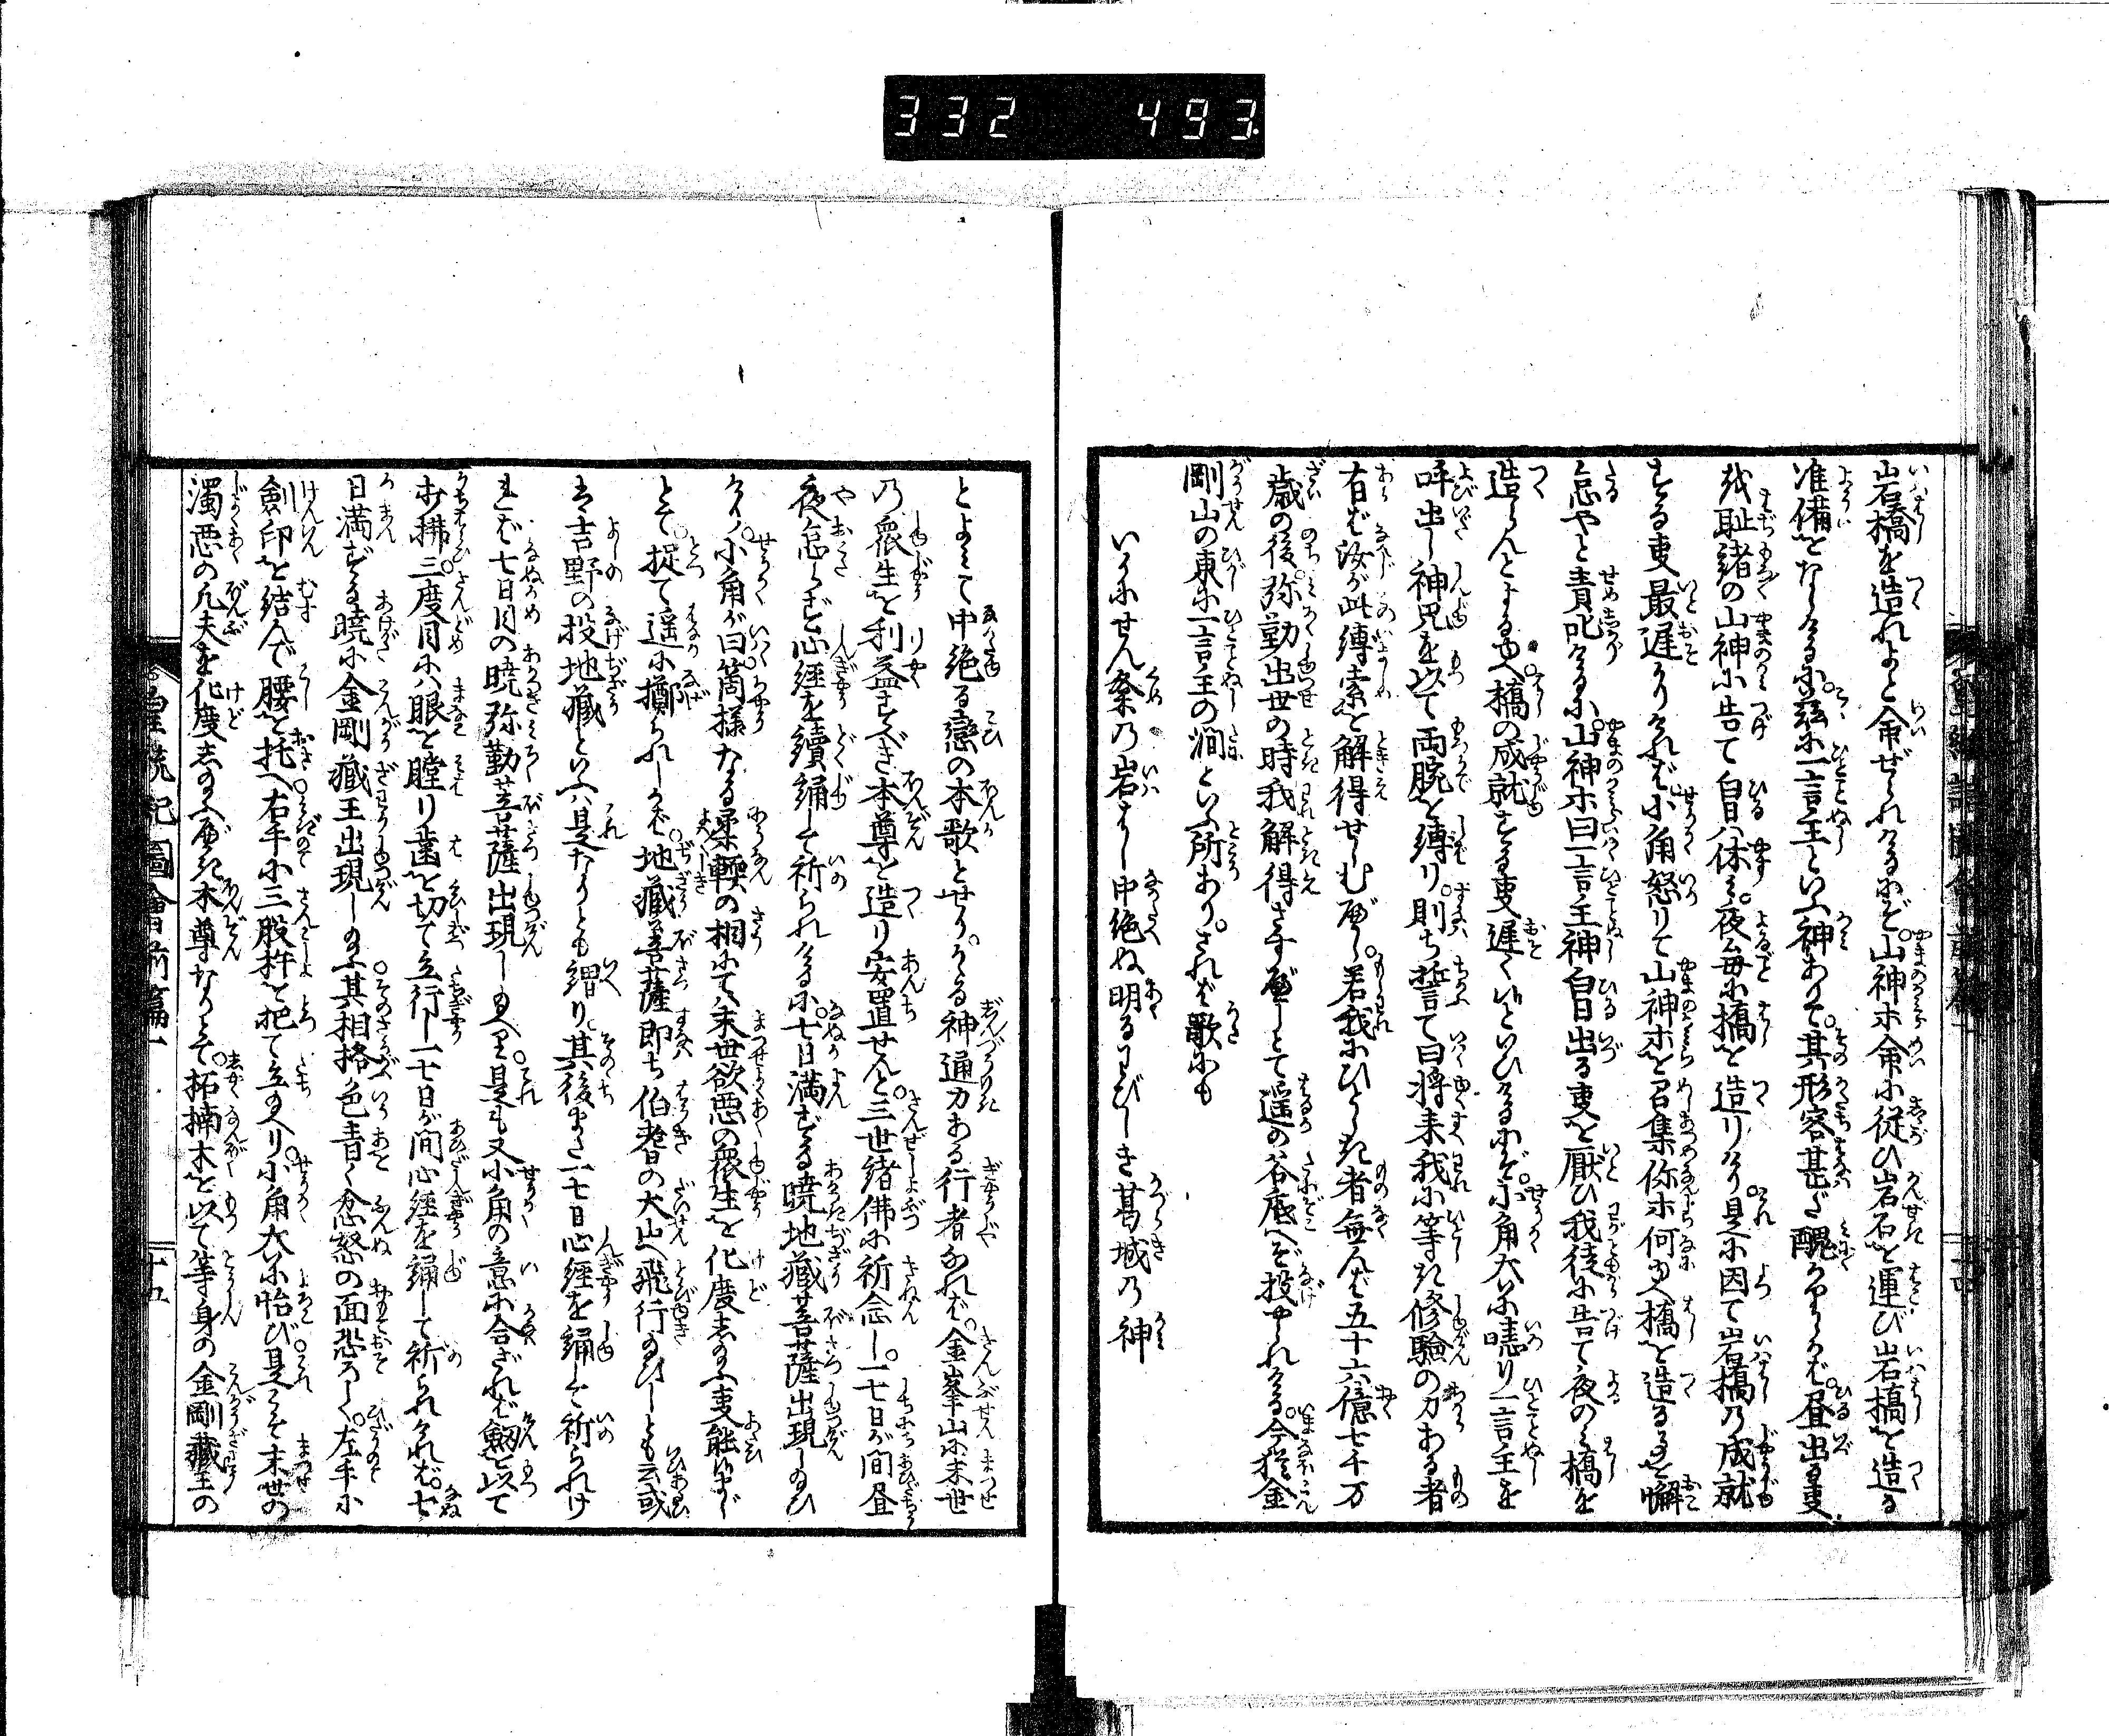 332 493
岩橋を造れよと命ぜられけるにぞ。山神ホ命に従ひ岩石を運び岩橋を造る
准備をなしけるに。茲に一言主といふ神ありて。其形容甚だ醜かりしかば。昼出る叓
を耻諸の山神に告て白昼ハ休み。夜毎に橋を造りけり。是に因て岩橋乃成就
する叓最遅かりければ。小角怒りて山神ホを召集你ホ何叓橋を造るを懈
怠やと責叱けるに。山神ホ曰一言主神白日出る叓を厭ひ我徒に告て夜のみ橋を
造らんとする叓橋の成就する叓遅く候といひけるにぞ。小角大に嗔り一言主を
呼出し神咒を以て両腕を縛り。則ち誓て曰将来我に等しき修験の力ある者
有ば汝が此縛索を解得せしむべし。若我にひとしき者無んば五十六億七千万
歳の後。弥勒出世の時我解得さすべしとて遥の谷底へぞ投やられける。今猶金
剛山の東に一言主の澗といふ所あり。されば歌にも
いかにせん粂乃岩はし中絶ぬ明るわびしき葛城乃神
とよみて中絶る戀の本歌とせり。かゝる神通力ある行者なれば。金峯山に末世
乃衆生を利益すべき本尊を造り安置せんと。三世諸佛に祈念し。一七日が間昼
夜怠らず心経を續誦して祈られけるに。七日満ずる暁地藏菩薩出現し給ひ
けり。小角が曰。箇様なる柔輭の相にてハ末世欲悪の衆生を化度し給ふ叓能まじ
とて。捉て遥に擲られしかば。地藏菩薩即ち伯耆の大山へ飛行給ひしとも云或
は吉野の投地藏といふハ是なりとも謂り。其後また一七日心経を誦して祈られけ
れば七日目の暁弥勒菩薩出現し給へり。是も又小角の意に合ざれば劔を以て
打拂三度目にハ眼を瞠り歯を切て立行し一七日が間心経を誦して祈られければ。七
日満ずる暁に金剛藏王出現し給ふ其相挌色青く忿怒の面恐ろしく。左手に
劍印を結んで腰を托へ右手に三股杵を把て立給へり。小角大に怡び。是こそ末世の
濁悪の凡夫を化度し給ふべき本尊なりとて。柘楠木を以て等身の金剛藏王の
皇統記圖會前篇一 十五